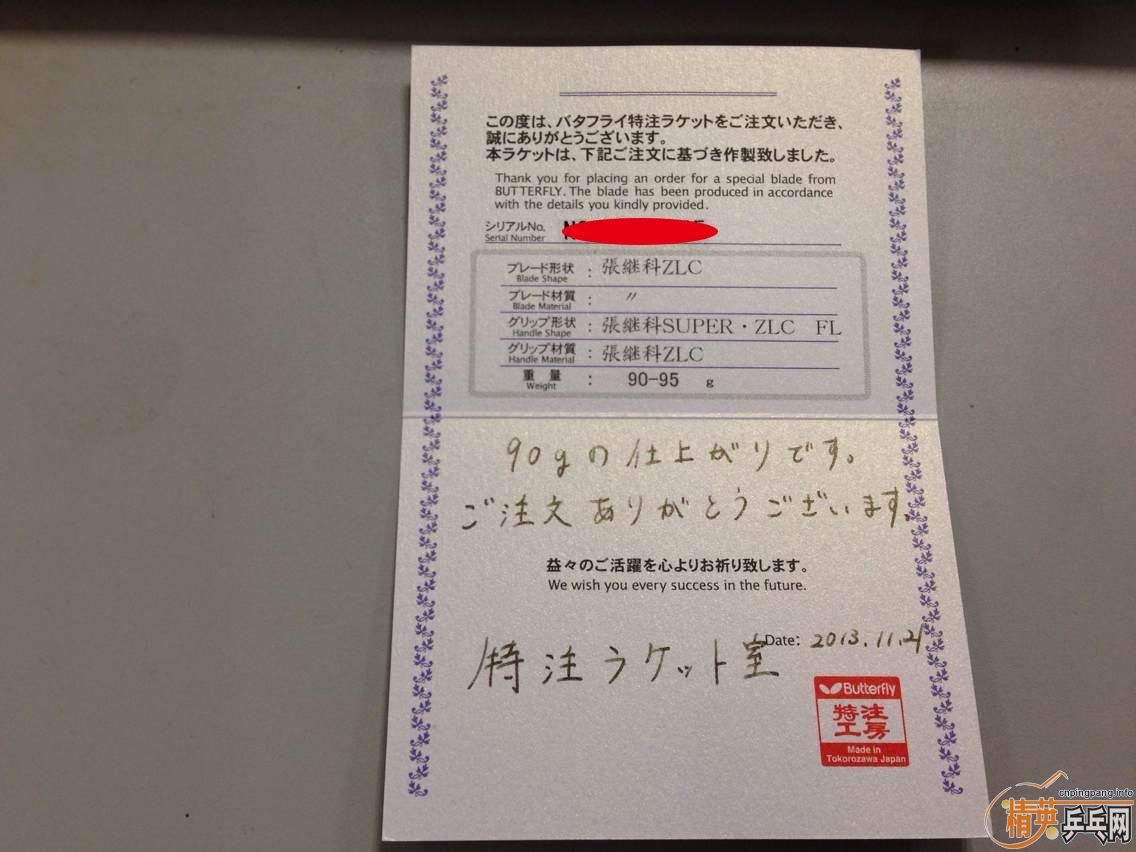 この度は、バタフライ特注ラケットをご注文いただき、
誠にありがとうございます。
本ラケットは、下記ご注文に基づき作製致しました。
Thank you for placing an order for a special blade from
BUTTERFLY. The blade has been produced in accordance
with the details you kindly provided.
シリアルNo.
Serial Number
ブレード形状 : 張継科ZLC
Blade Shape
ブレード材質 : 〃
Blade Material
グリップ形状 : 張継科SUPER・ZLC FL
Handle Shape
グリップ材質 : 張継科ZLC
Handle Material
重量 : 90-95 g
Weight
90gの仕上がりです。
ご注文ありがとうございます。
益々のご活躍を心よりお祈り致します。
We wish you every success in the future.
Date: 2013.11.21
特注ラケット室
Butterfly
特注
工房
Made in
Tokorozawa Japan
cnpingpang.info
精英乒乓网